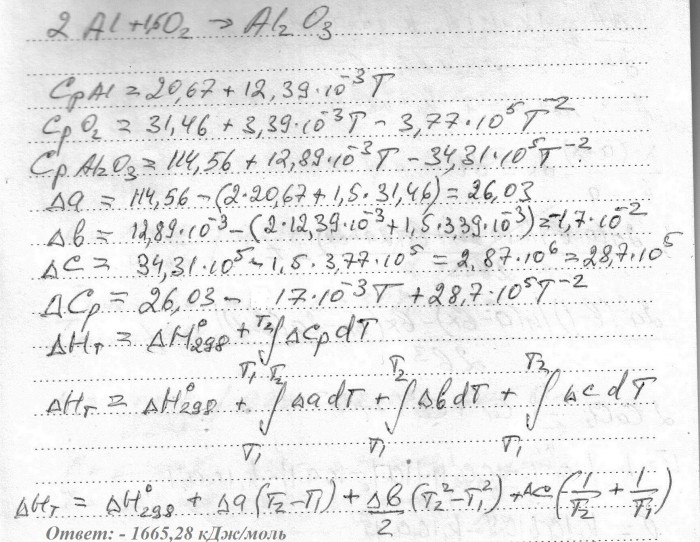 2 Al + 1,5O₂ → Al₂O₃
CpAl = 20,67 + 12,39·10⁻³T
CpO₂ = 31,46 + 3,39·10⁻³T - 3,77·10⁵T⁻²
CpAl₂O₃ = 114,56 + 12,89·10⁻³T - 34,31·10⁵T⁻²
Δa = 114,56 - (2·20,67 + 1,5·31,46) = 26,03
Δв = 12,89·10⁻³ - (2·12,39·10⁻³ + 1,5·339·10⁻³) = -1,7·10⁻²
Δc = 34,31·10⁵ - 1,5·3,77·10⁵ = 2,87·10⁶ = 28,7·10⁵
ΔCp = 26,03 - 17·10⁻³T + 28,7·10⁵T⁻²
ΔHт = ΔH°₂₉₈ + T₁∫T₂ ΔCpdT
ΔHт = ΔH°₂₉₈ + T₁∫T₂ ΔadT + T₁∫T₂ ΔвdT + T₁∫T₂ ΔcdT
ΔHт = ΔH°₂₉₈ + Δa(T₂-T₁) + Δв/2 (T₂²-T₁²) + Δc(-1/T₂ + 1/T₁)
Ответ: - 1665,28 кДж/моль